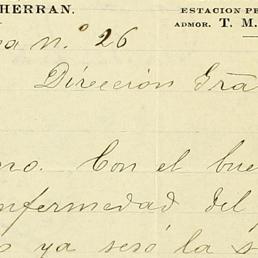 HERRAN.
ESTACION PE
ADMOR. T. M.
a n.º 26
Dirección Gra
no. Con el bue
nfermedad del
ya será la s